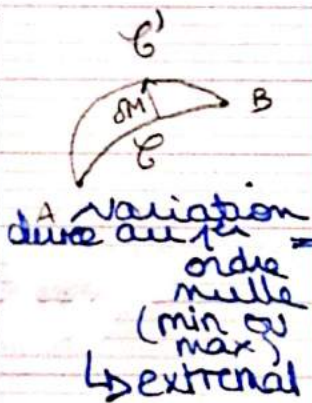 C'
δM
B
C
A variation
durée au 1er =
ordre
nulle
(min ou
max)
↳ extremal